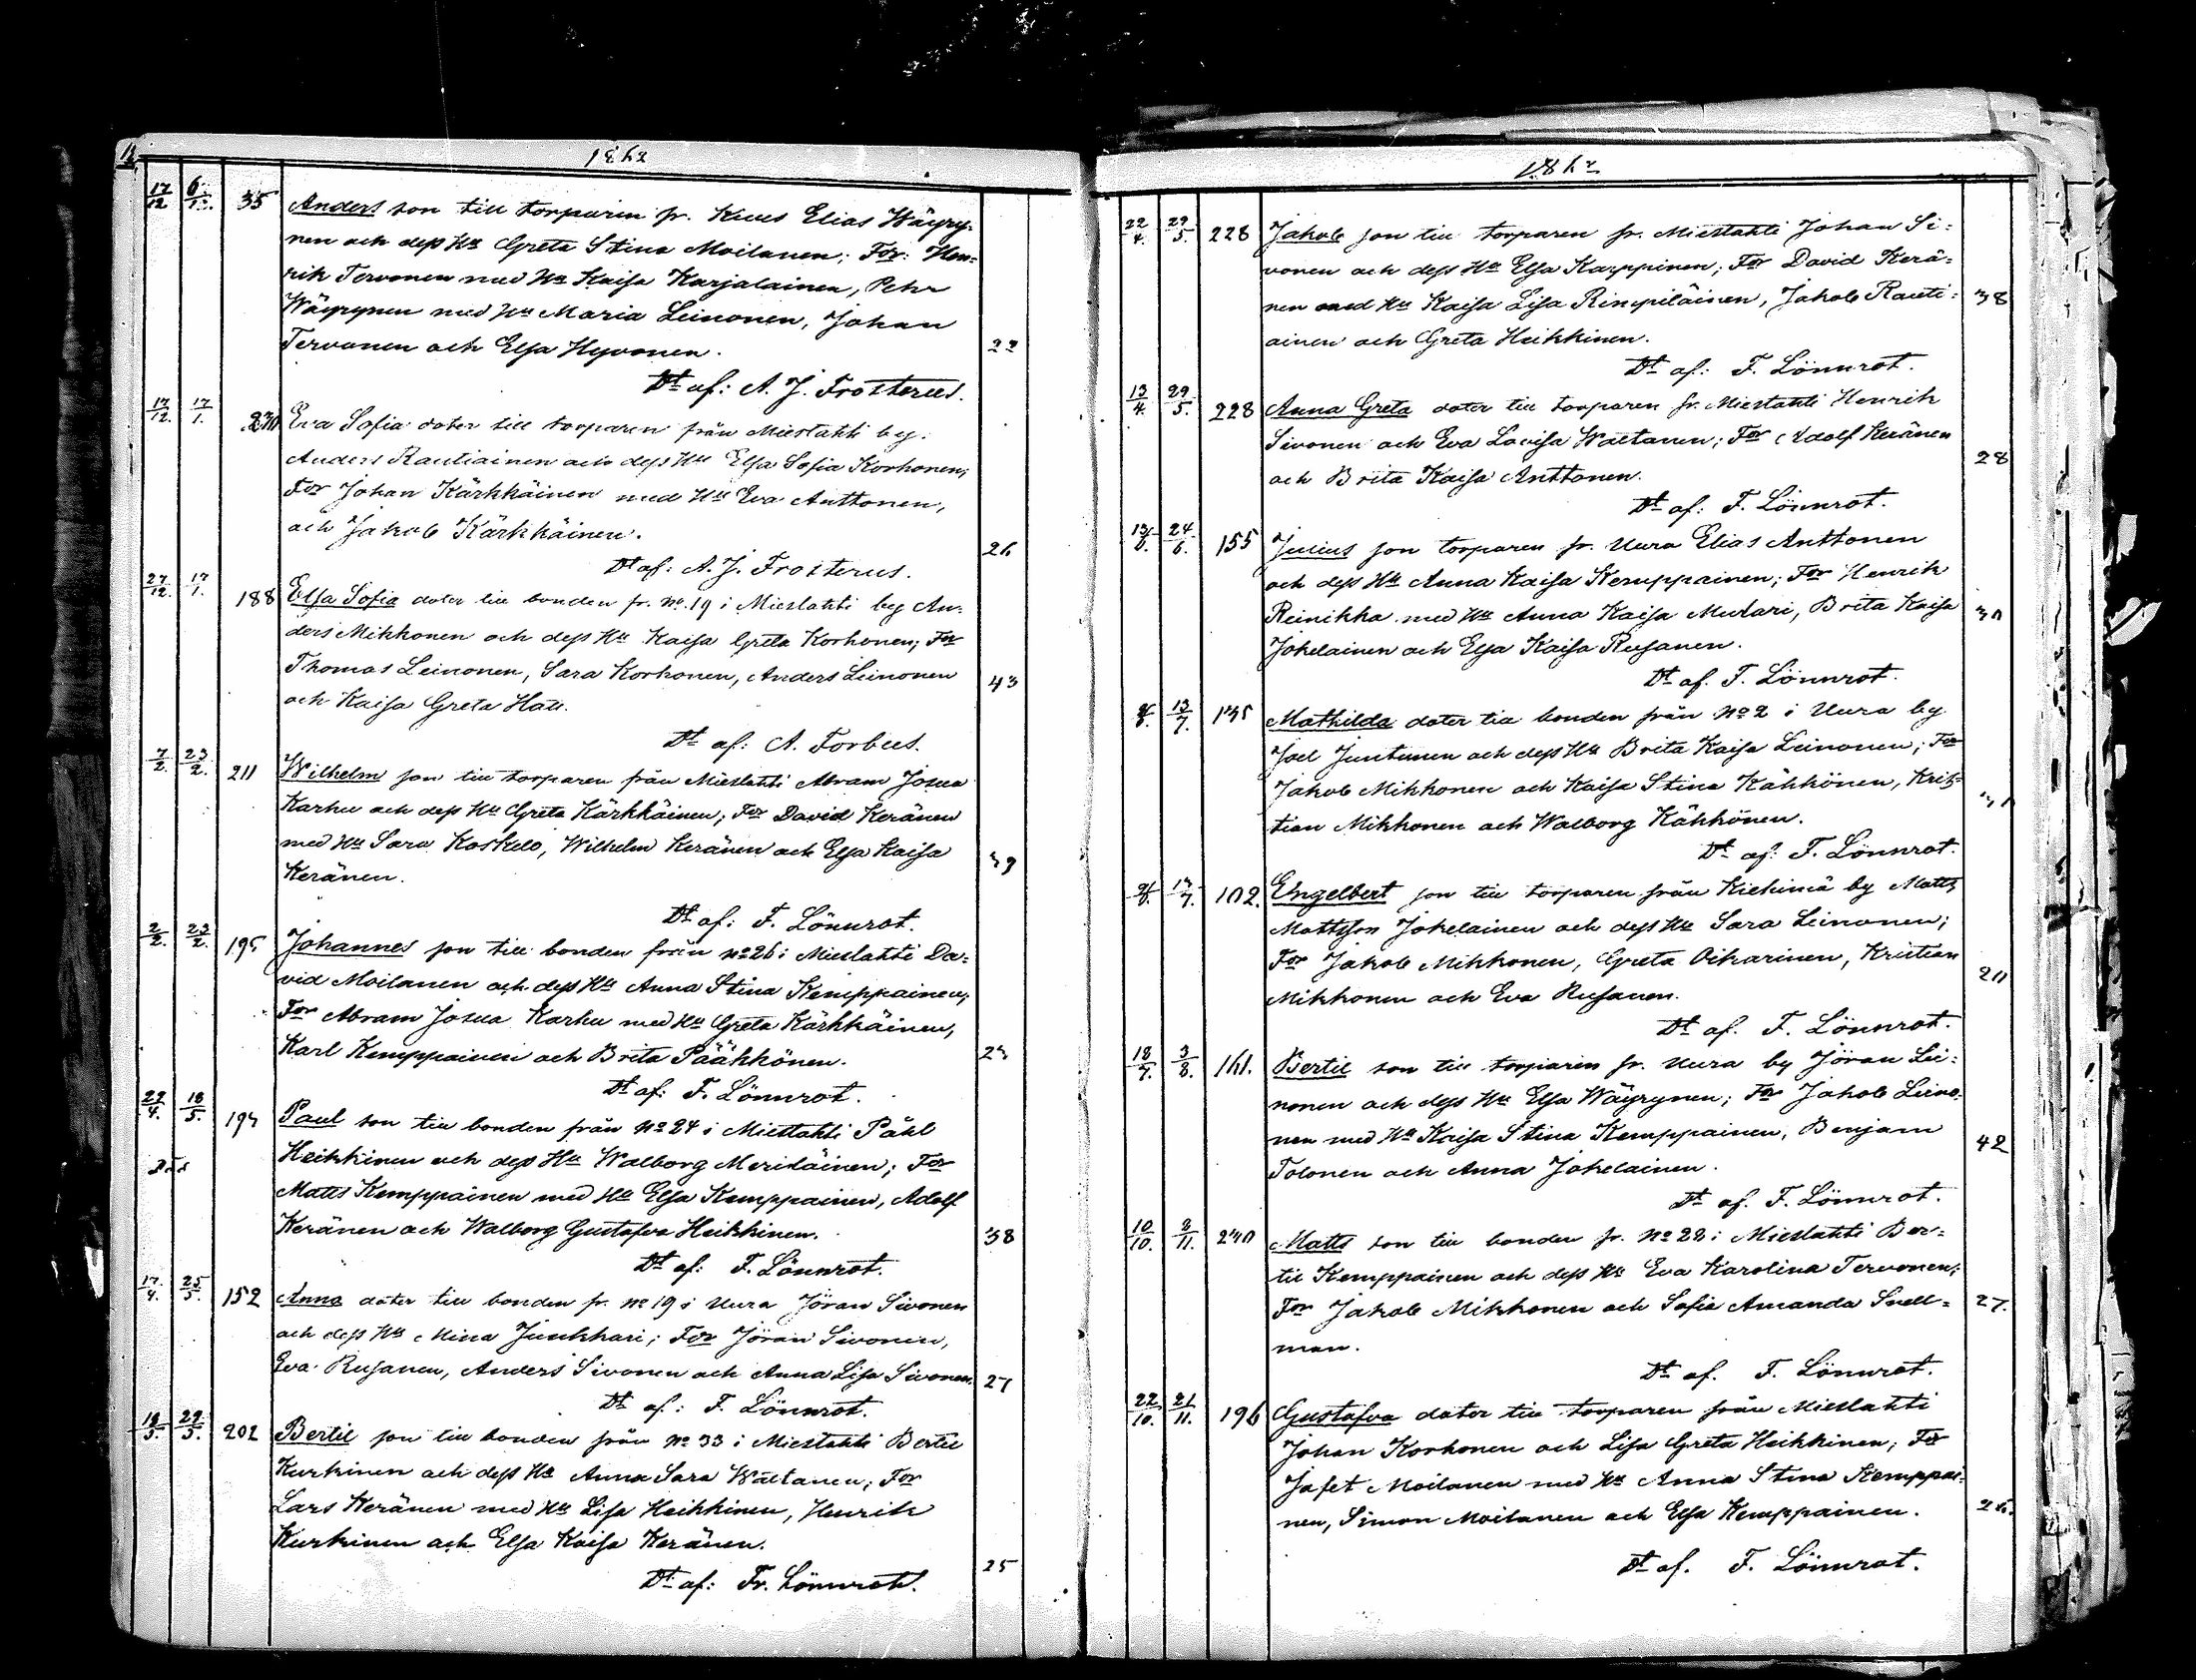 1862
17/12 6/1. 35 Anders son till torparen fr. Kives Elias Wäyry-
nen och dess Hu Greta Stina Moilanen; For: Hen-
rik Tervonen med Hu Kaisa Karjalainen, Pehr
Wäyrynen med Hu Maria Leinonen, Johan
Tervonen och Elsa Hyvonen. 22
Dt af: A. J. Frosterus.
17/12. 17/1. 230 Eva Sofia doter till torparen från Mieslahti by.
Anders Rautiainen och dess Hu Elsa Sofia Korhonen;
For Johan Kärkkäinen med Hu Eva Anttonen,
och Jakob Kärkkäinen. 26
Dt af: A. J. Frosterus.
27/12. 17/1. 188 Elsa Sofia doter till bonden fr. No. 19 i Mieslahti by An-
ders Mikkonen och dess Hu Kaisa Greta Korhonen; For
Thomas Leinonen, Sara Korhonen, Anders Leinonen 43
och Kaisa Greta Hall.
Dt af: A. Forbus.
7/2. 23/2. 211 Wilhelm son till torparen från Mieslahti Abram Josua
Karhu och dess Hu Greta Kärkkäinen; For David Keränen
med Hu Sara Koskelo, Wilhelm Keränen och Elsa Kaisa 39
Keränen.
Dt af: F. Lönnrot.
2/2. 23/2. 195 Johannes son till bonden från No 26 i Mieslahti Da-
vid Moilanen och dess Hu Anna Stina Kemppainen;
For Abram Josua Karhu med Hu Greta Kärkkäinen,
Karl Kemppainen och Brita Pääkkönen. 23
Dt af: F. Lönnrot.
22/4. 18/5. 193 Paul son till bonden från No 24 i Mieslahti Påhl
Heikkinen och dess Hu Walborg Meriläinen; For
Matts Kemppainen med Hu Elsa Kemppainen, Adolf
Keränen och Walborg Gustafva Heikkinen. 38
Dt af: F. Lönnrot.
17/4. 25/5. 152 Anna doter till bonden fr. No 19 i Uura Jöran Sivonen
och dess Hu Mina Junkkari; For Jöran Sivonen,
Eva Rusanen, Anders Sivonen och Anna Lisa Sivonen. 27
Dt af: F. Lönnrot.
19/5. 29/5. 202 Bertil son till bonden från No 33 i Mieslahti Bertil
Kurkinen och dess Hu Anna Sara Waltanen; For
Lars Keränen med Hu Lisa Heikkinen, Henrik
Kurkinen och Elsa Kaisa Keränen. 25
Dt af: Fr. Lönnrot.
1862
22/4. 29/5. 228 Jakob son till torparen fr. Mieslahti Johan Si-
vonen och dess Hu Elsa Karppinen; For David Kerä-
nen med Hu Kaisa Lisa Rimpiläinen, Jakob Rauti- 38
ainen och Greta Heikkinen.
Dt af: F. Lönnrot.
13/4. 29/5. 228 Anna Greta doter till torparen fr. Mieslahti Henrik
Sivonen och Eva Lovisa Waltanen; For Adolf Keränen 28
och Brita Kaisa Anttonen.
Dt af: F. Lönnrot.
13/6. 24/6. 155 Julius son torparen fr. Uura Elias Anttonen
och dess Hu Anna Kaisa Kemppainen; For Henrik
Reinikka med Hu Anna Kaisa Mulari, Brita Kaisa 30
Jokelainen och Elsa Kaisa Rusanen.
Dt af. F. Lönnrot.
13/7. 135 Mathilda doter till bonden från No 2 i Uura by
Joel Juntunen och dess Hu Brita Kaisa Leinonen; For
Jakob Mikkonen och Kaisa Stina Kähkönen, Kris-
tian Mikkonen och Walborg Kähkönen.
Dt af: F. Lönnrot.
102. Engelbert son till torparen från Kiehimä by Matts
Mattsson Jokelainen och dess Hu Sara Leinonen;
For Jakob Mikkonen, Greta Oikarinen, Kristian 20
Mikkonen och Eva Rusanen.
Dt af. F. Lönnrot.
18/7. 3/8. 161. Bertil son till torparen fr. Uura by Jöran Lei-
nonen och dess Hu Elsa Wäyrynen; For Jakob Leino-
nen med Hu Kaisa Stina Kemppainen, Benjam 42
Tolonen och Anna Jokelainen.
Dt af. F. Lönnrot.
10/10. 2/11. 230 Matts son till bonden fr. No 28 i Mieslahti Ber-
til Kemppainen och dess Hu Eva Karolina Tervonen;
For Jakob Mikkonen och Sofie Amanda Snell- 27.
man.
Dt af. F. Lönnrot.
22/10. 21/11. 196 Gustafva doter till torparen från Mieslahti
Johan Korhonen och Lisa Greta Heikkinen; For
Jafet Moilanen med Hu Anna Stina Kemppai-
nen, Simon Moilanen och Elsa Kemppainen. 26.
Dt af. F. Lönnrot.